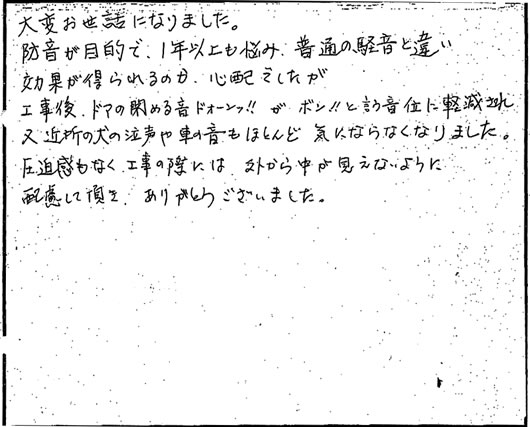 大変お世話になりました。
防音が目的で、1年以上も悩み、普通の騒音と違い
効果が得られるのか、心配でしたが
工事後、ドアの閉める音ドォーンッ!! が ボン!! と言う音位に軽減され
又近所の犬の泣声や車の音もほとんど 気にならなくなりました。
圧迫感もなく、工事の際には 外から中が見えないように
配慮して頂き、ありがとうございました。